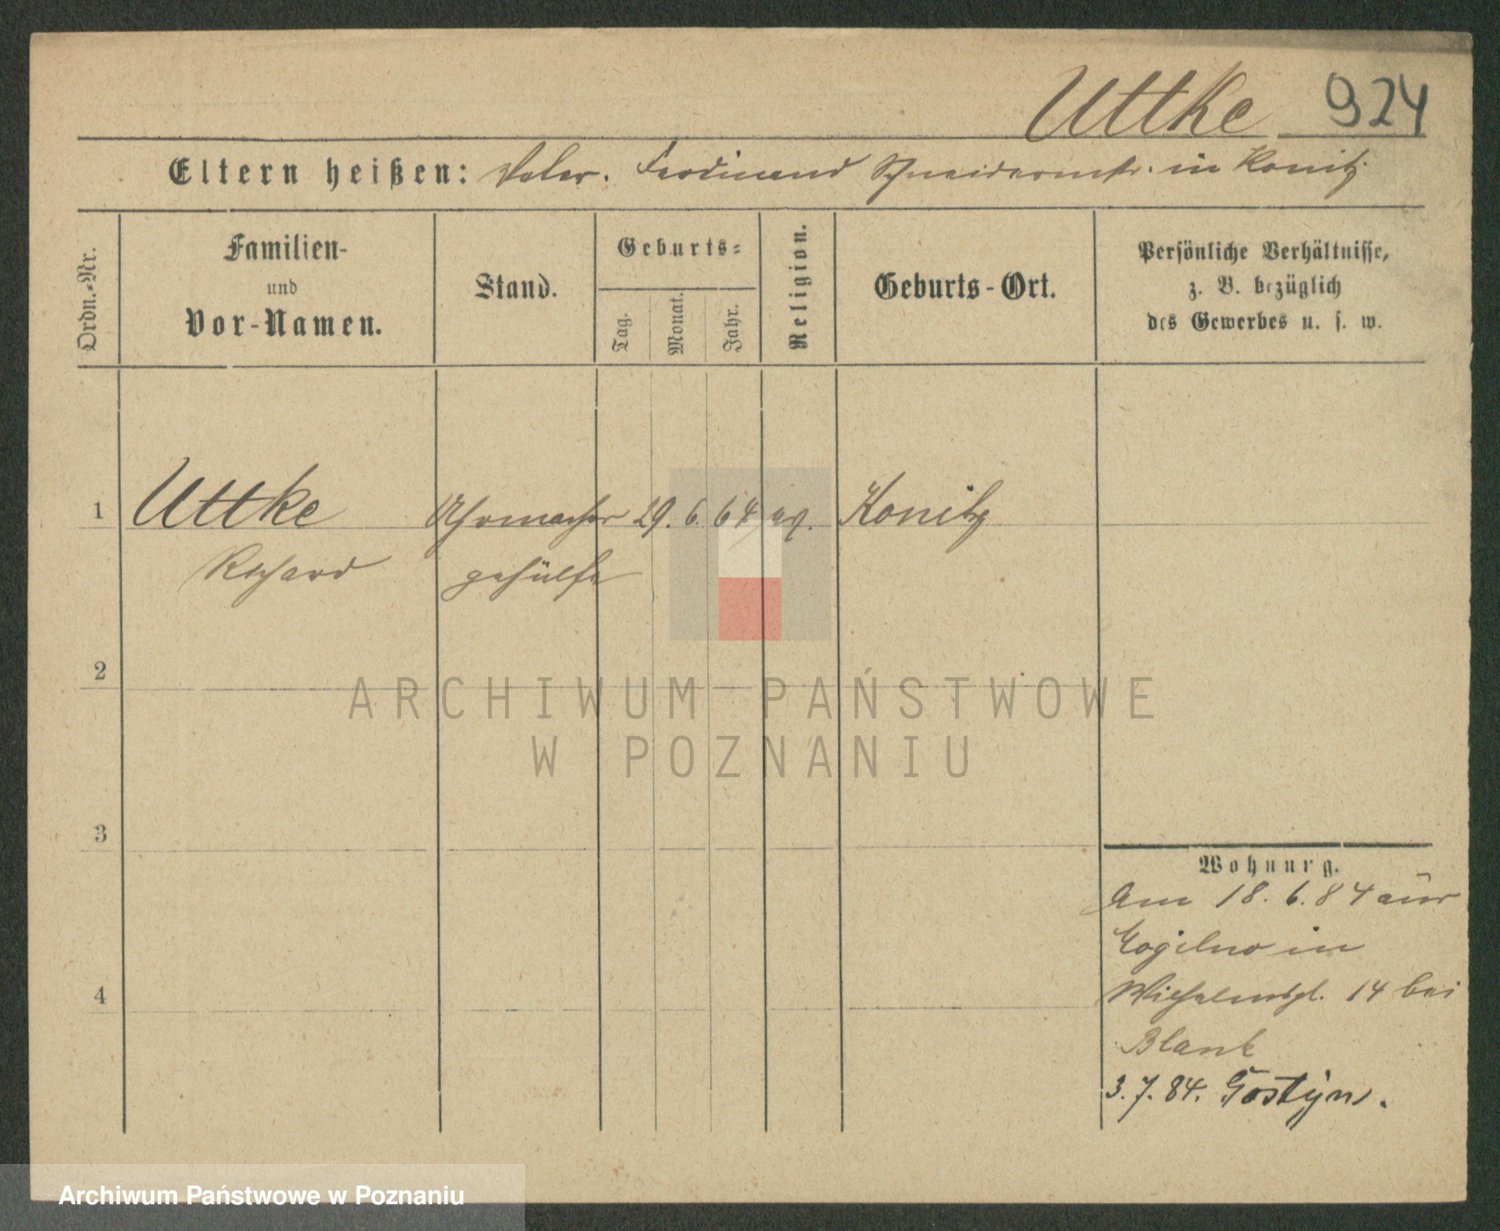 Uttke 924
Eltern heißen: Vater. Ferdinand Schneidermstr. in Konitz
Ordn.-Nr.
Familien-
und
Vor-Namen.
Stand.
Geburts-
Tag.
Monat.
Jahr.
Religion.
Geburts-Ort.
Persönliche Verhältnisse,
z. B. bezüglich
des Gewerbes u. s. w.
1 Uttke Uhrmacher 29. 6. 64 ev. Konitz
Richard gehülfe
2
ARCHIWUM PAŃSTWOWE
W POZNANIU
3
Wohnung.
Am 18. 6. 84 aus
Mogilno in
4
Wilhelmspl. 14 bei
Blank
3. 7. 84. Gostyn.
Archiwum Państwowe w Poznaniu